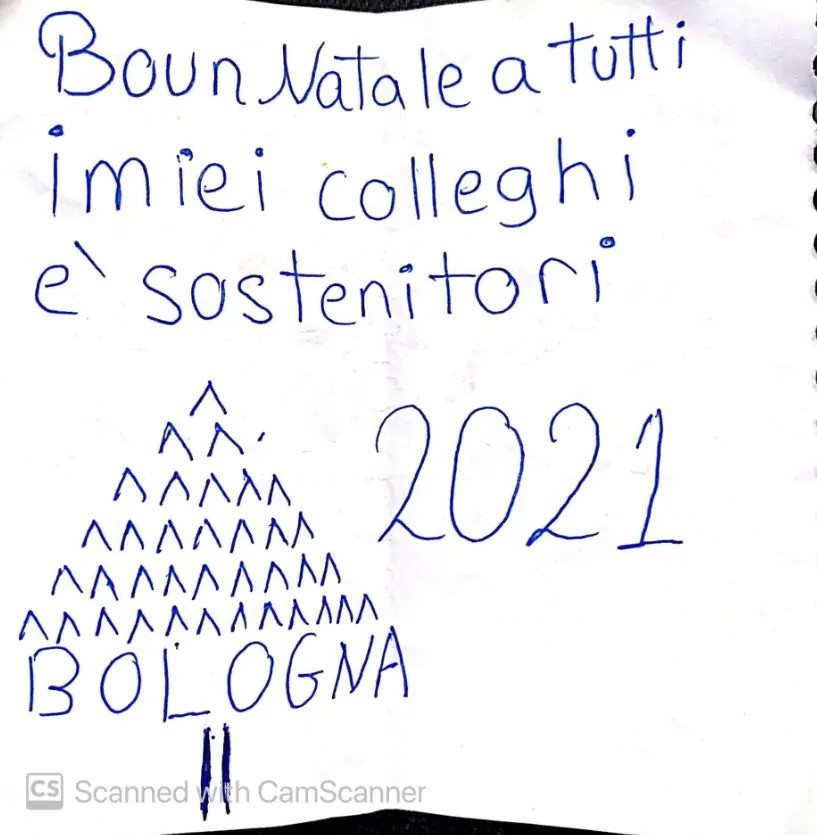 Boun Natale a tutti
i miei colleghi
e` sostenitori
2021
BOLOGNA
CS Scanned with CamScanner